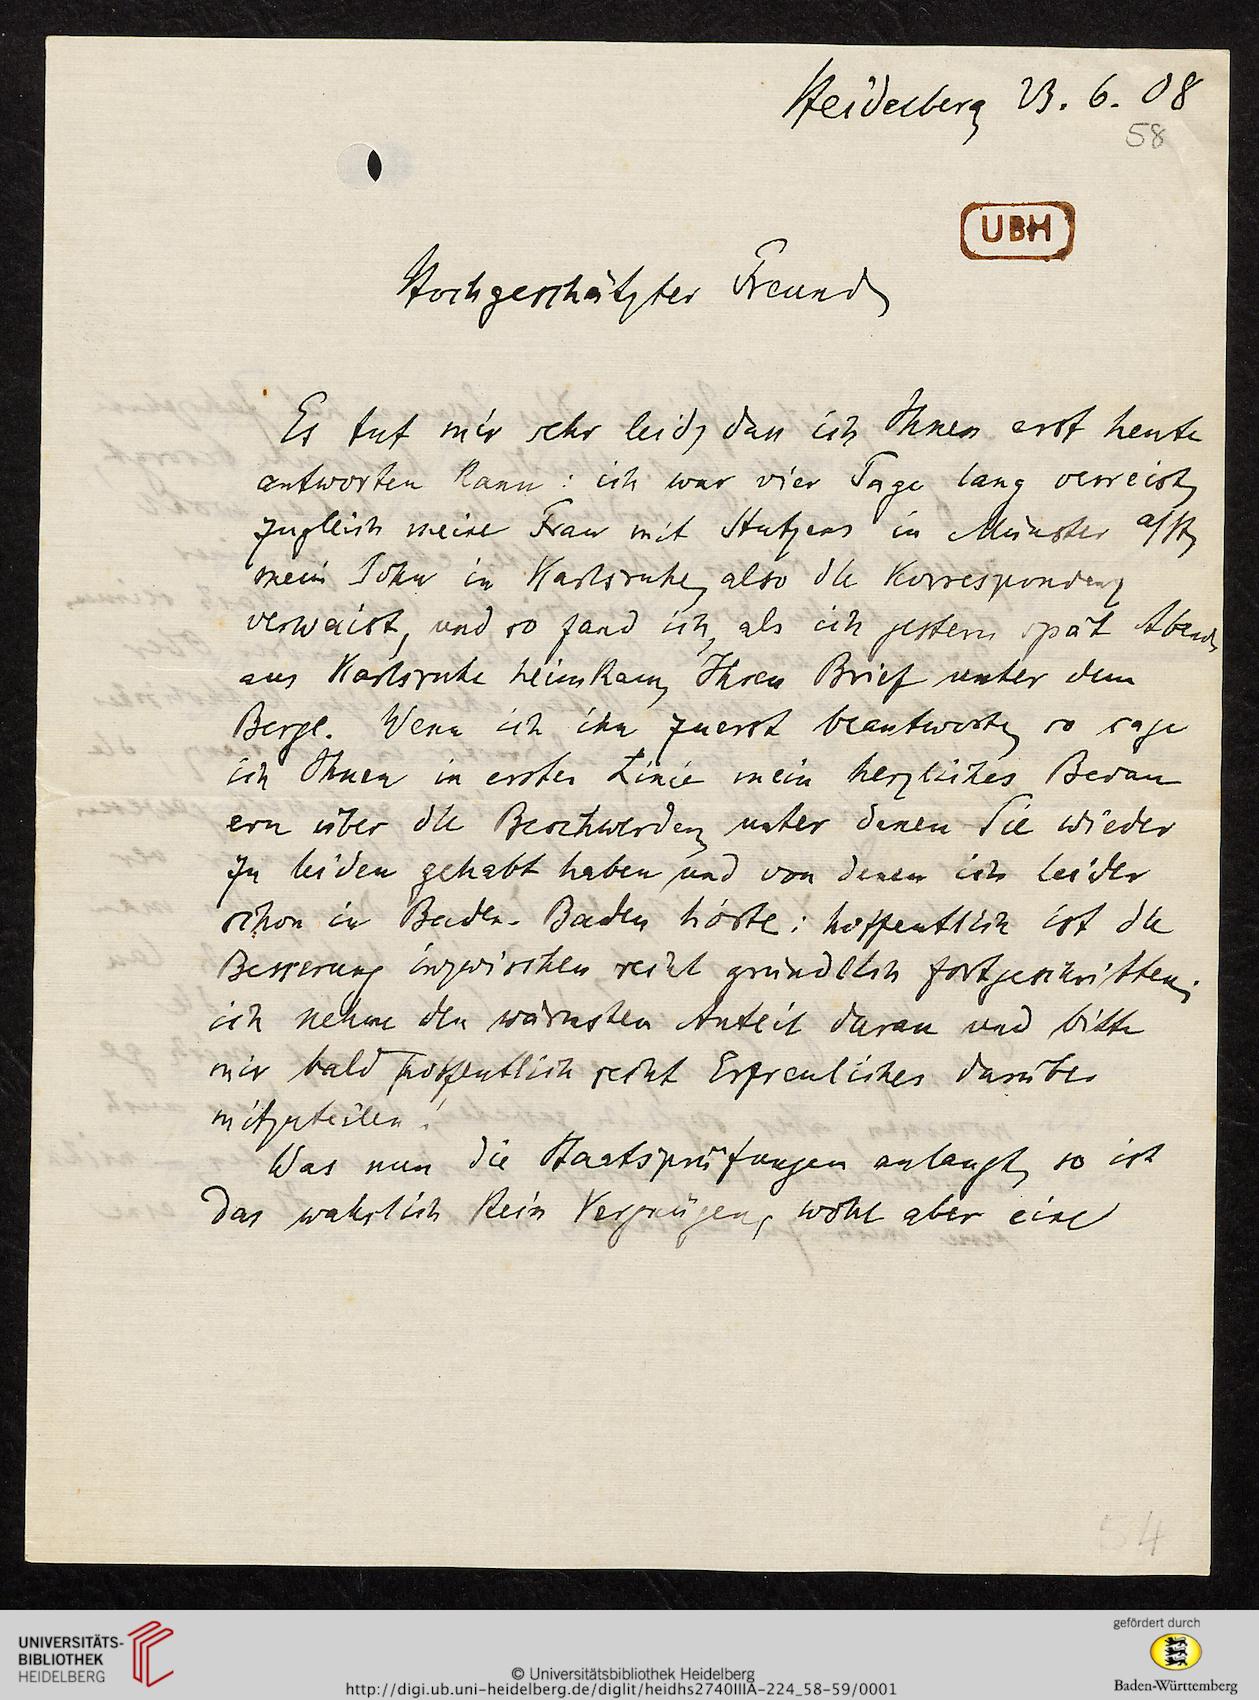 Heidelberg 23. 6. 08
58
UBH
Hochgeschätzter Freund,
Es tut mir sehr leid, dass ich Ihnen erst heute
antworten kann: ich war vier Tage lang verreist,
zugleich meine Frau mit Stutzens in Münster a/St,
mein Sohn in Karlsruhe, also die Korrespondenz
verwaist, und so fand ich, als ich gestern spät Abends
aus Karlsruhe heimkam, Ihren Brief unter dem
Berge. Wenn ich ihn zuerst beantworte, so sage
ich Ihnen in erster Linie mein herzliches Bedau
ern über die Beschwerden, unter denen Sie wieder
zu leiden gehabt haben und von denen ich leider
schon in Baden-Baden hörte; hoffentlich ist die
Besserung inzwischen recht gründlich fortgeschritten;
ich nehme den wärmsten Anteil daran und bitte
mir bald hoffentlich recht Erfreuliches darüber
mitzuteilen!
Was nun die Staatsprüfungen anlangt, so ist
das wahrlich kein Vergnügen, wohl aber eine
54
UNIVERSITÄTS-
BIBLIOTHEK
HEIDELBERG
© Universitätsbibliothek Heidelberg
http://digi.ub.uni-heidelberg.de/diglit/heidhs2740IIIA-224_58-59/0001
gefördert durch
Baden-Württemberg